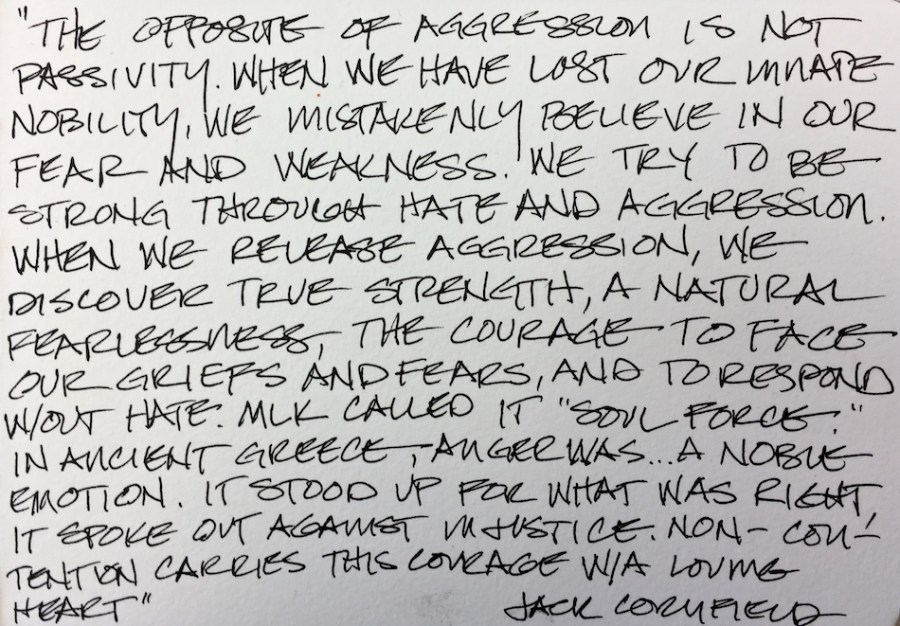 "THE OPPOSITE OF AGGRESSION IS NOT
PASSIVITY. WHEN WE HAVE LOST OUR INNATE
NOBILITY, WE MISTAKENLY BELIEVE IN OUR
FEAR AND WEAKNESS. WE TRY TO BE
STRONG THROUGH HATE AND AGGRESSION.
WHEN WE RELEASE AGGRESSION, WE
DISCOVER TRUE STRENGTH, A NATURAL
FEARLESSNESS, THE COURAGE TO FACE
OUR GRIEFS AND FEARS, AND TO RESPOND
W/OUT HATE. MLK CALLED IT "SOUL FORCE."
IN ANCIENT GREECE, ANGER WAS...A NOBLE
EMOTION. IT STOOD UP FOR WHAT WAS RIGHT
IT SPOKE OUT AGAINST INJUSTICE. NON-CON-
TENTION CARRIES THIS COURAGE W/A LOVING
HEART"
JACK CORNFIELD